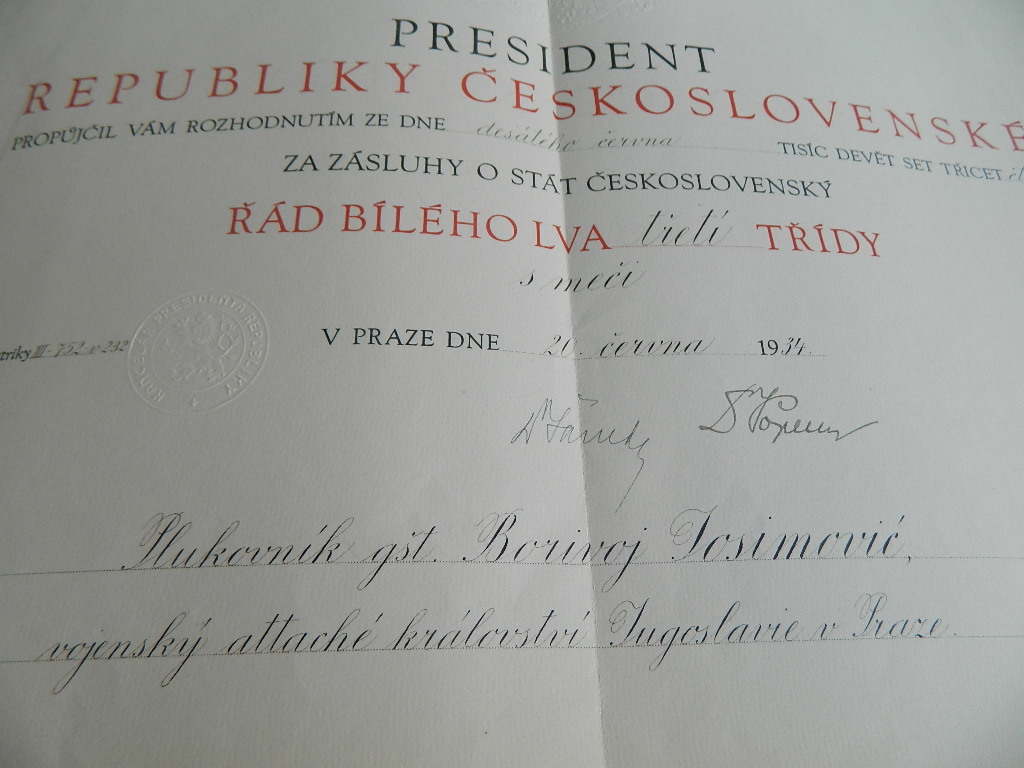 PRESIDENT
REPUBLIKY ČESKOSLOVENSKÉ
PROPŮJČIL VÁM ROZHODNUTÍM ZE DNE desátého června TISÍC DEVĚT SET TŘICET
ZA ZÁSLUHY O STÁT ČESKOSLOVENSKÝ
ŘÁD BÍLÉHO LVA třetí TŘÍDY
s meči
triky III-752-v-232
V PRAZE DNE 20. června 1934.
Plukovník gšt. Borivoj Josimović,
vojenský attaché království Jugoslavie v Praze.